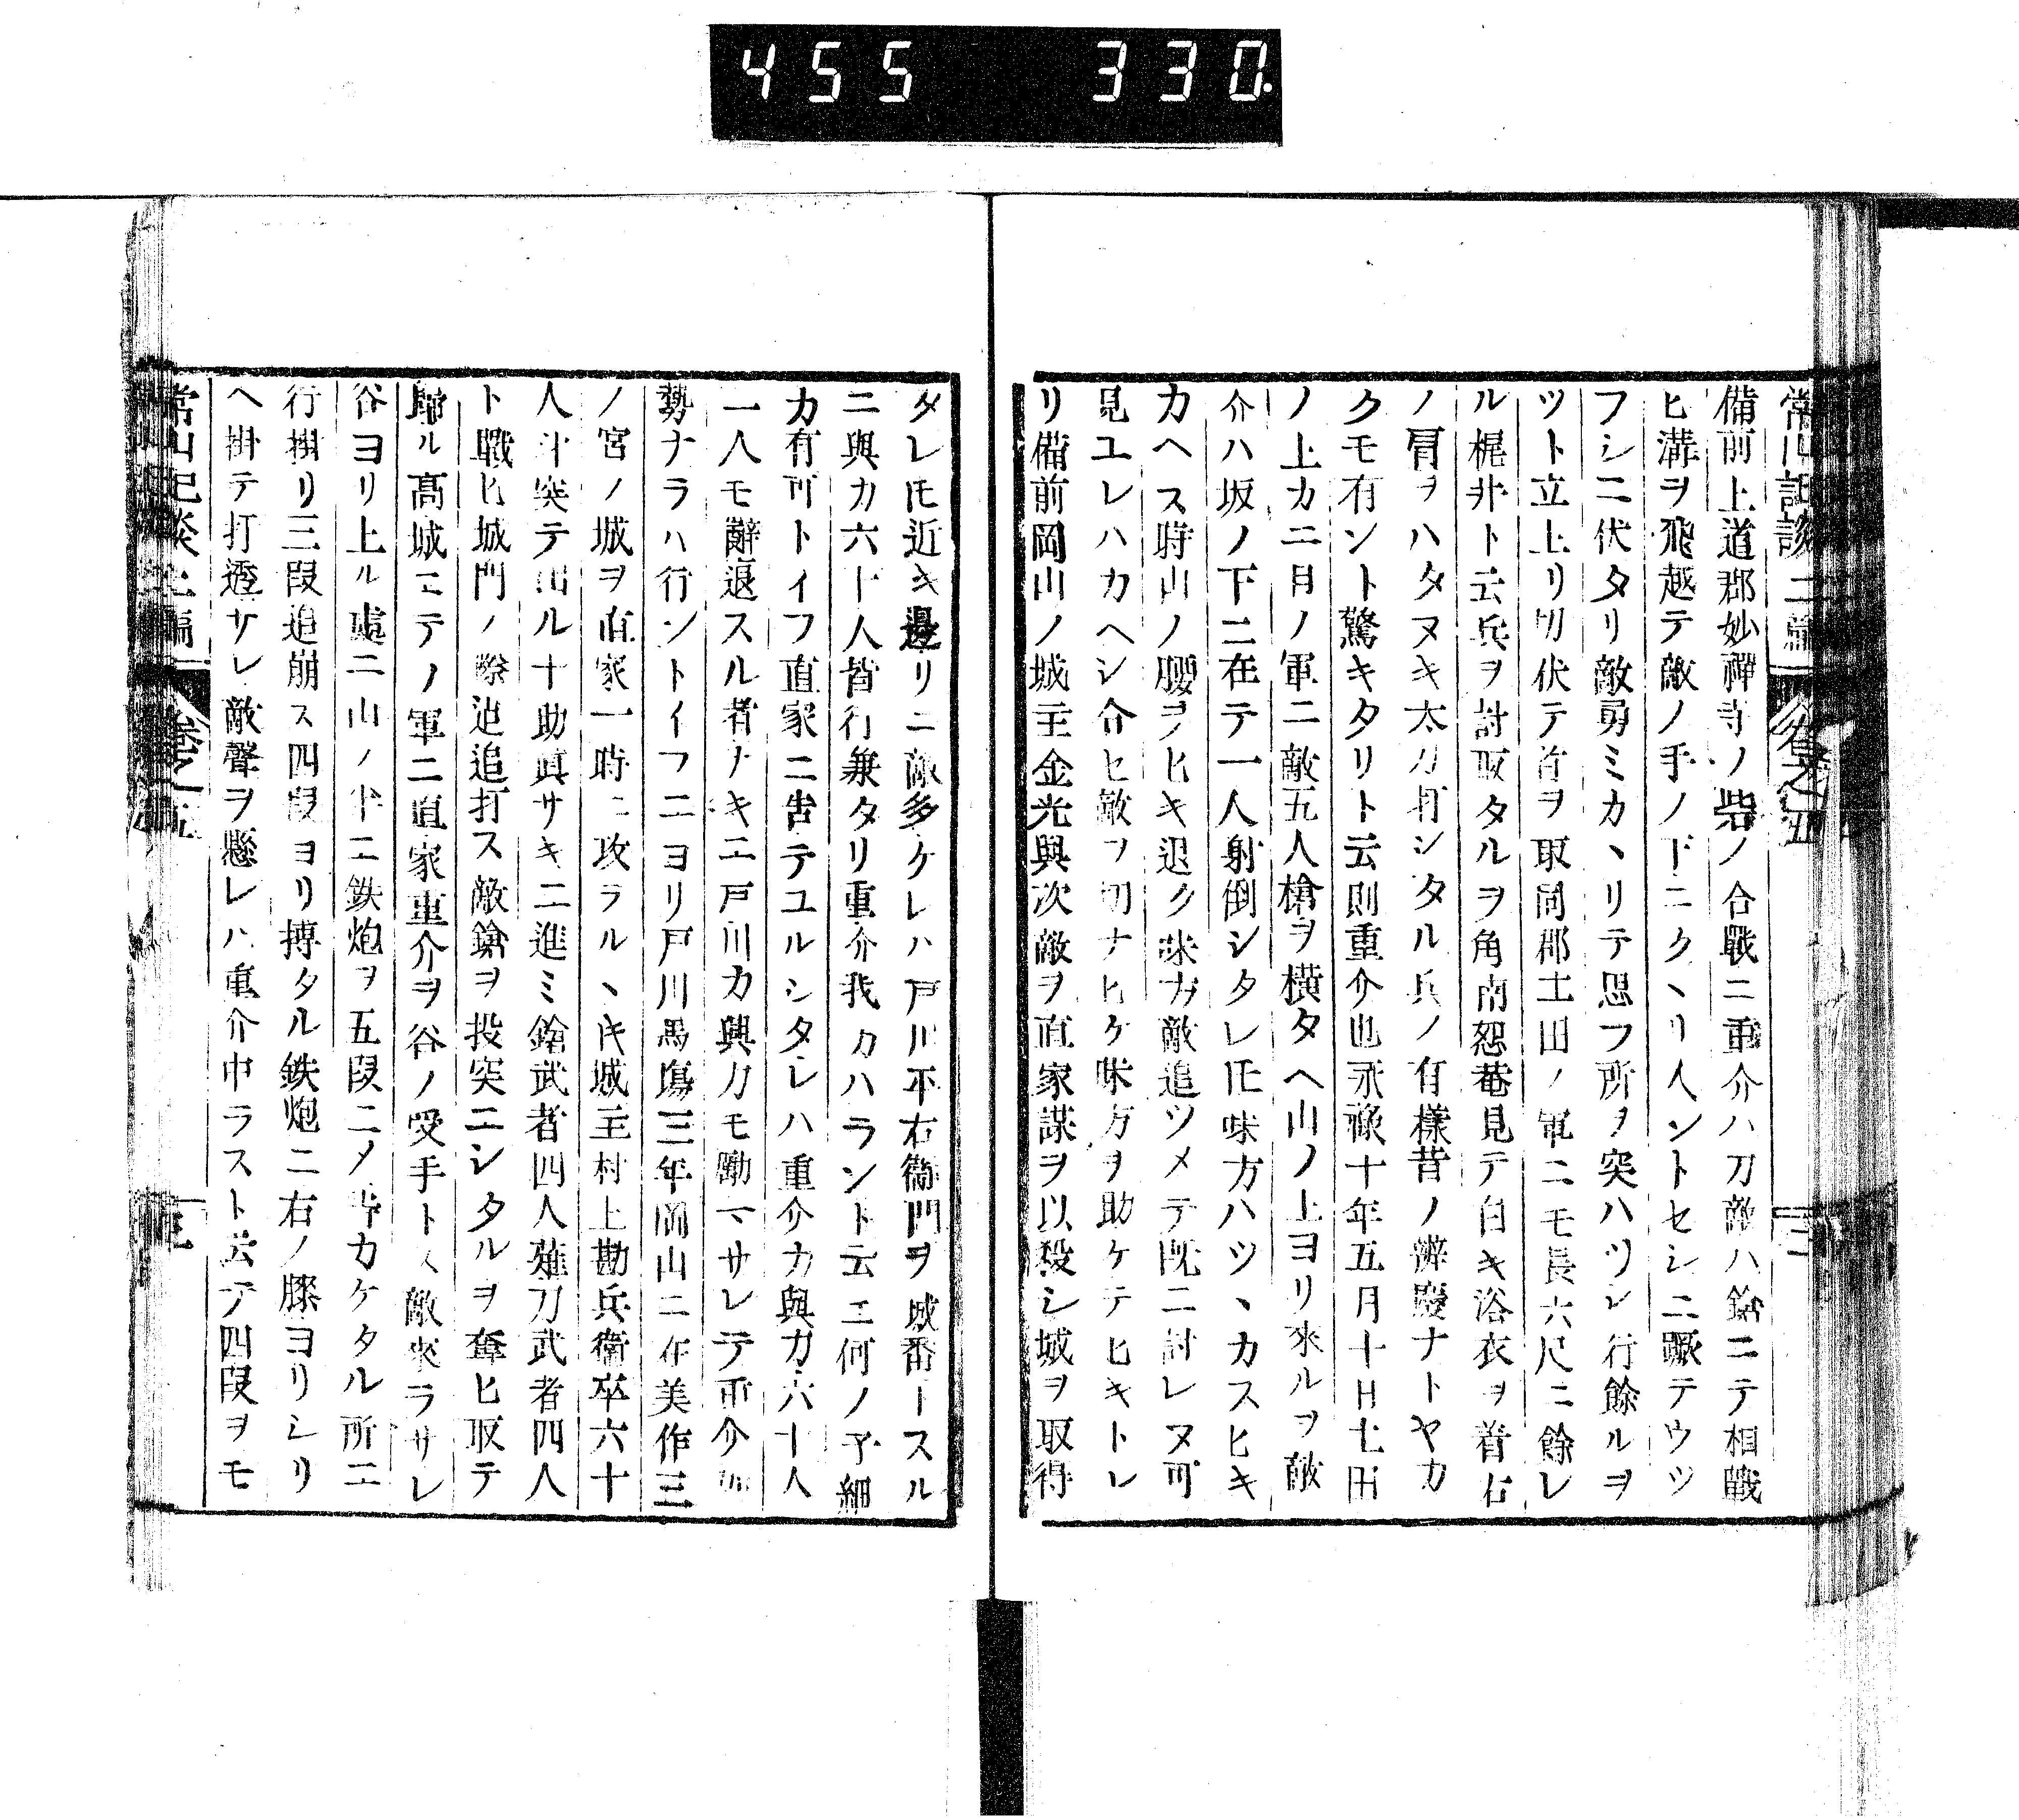 455 330
備前上道郡妙禪寺ノ砦ノ合戰ニ重介ハ刀敵ハ鎗ニテ相戰
ヒ溝ヲ飛越テ敵ノ手ノ下ニクヽリ人ントセシニ蹶テウツ
フシニ伏タリ敵勇ミカヽリテ思フ所ヲ突ハツレ行餘ルヲ
ツト立上リ切伏テ首ヲ取同郡土田ノ軍ニモ長六尺ニ餘レ
ル梶井ト云兵ヲ討取タルヲ角南恕菴見テ白キ浴衣ヲ着右
ノ肩ヲハタヌキ太刀打シタル兵ノ有樣昔ノ辨慶ナトヤカ
クモ有ント驚キタリト云則重介也永祿十年五月十日土田
ノ上カ二目ノ軍ニ敵五人槍ヲ横タヘ山ノ上ヨリ來ルヲ敵
介ハ坂ノ下ニ在テ一人射倒シタレ𪜈味方ハツヽカスヒキ
カヘス時山ノ腰ヲヒキ退ク味方敵追ツメテ既ニ討レヌ可
見ユレハカヘシ合セ敵ヲ切ナヒケ味方ヲ助ケテヒキトレ
リ備前岡山ノ城主金光與次敵ヲ直家謀ヲ以殺シ城ヲ取得
タレ𪜈近キ邊リニ敵多ケレハ戸川平右衞門ヲ城番ースル
ニ與力六十人皆行兼タリ重介我カハラント云ニ何ノ子細
カ有可トイフ直家ニ告テユルシタレハ重介カ與力六十人
一人モ辭退スル者ナキニ戸川カ與力モ勵マサレテ重介
勢ナラハ行ントイフニヨリ戸川馬塲三年岡山ニ在美作三
ノ宮ノ城ヲ直家一時ニ攻ラルヽ𪜈城主村上勘兵衞卒六十
人斗突テ出ル十助眞サキニ進ミ鎗武者四人薙刀武者四人
ト戰ヒ城門ノ際迠追打ス敵鎗ヲ投突ニシタルヲ奪ヒ取テ
歸ル髙城ニテノ軍ニ直家重介ヲ谷ノ受手トス敵來ラサレ
谷ヨリ上ル處ニ山ノ半ニ鉄炮ヲ五段ニメ待カケタル所ニ
行掛リ三段追崩ス四段ヨリ搏タル鉄炮ニ右ノ膝ヨリシリ
ヘ掛テ打透サレ敵聲ヲ懸レハ重介中ラスト云テ四段ヲモ